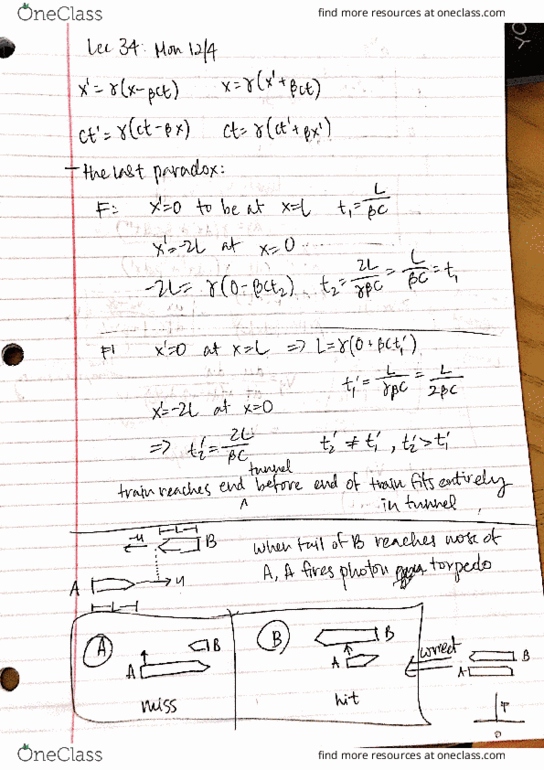 OneClass
find more resources at oneclass.com
Lec 34: Mon 12/4
x' = γ(x-βct) x = γ(x'+βct)
ct' = γ(ct-βx) ct = γ(ct'+βx')
- the last paradox:
F: x'=0 to be at x=L t₁ = L/βc
x'=-2L at x=0
-2L = γ(0-βct₂) t₂ = 2L/γβc = L/βc = t₁
F' x'=0 at x=L => L=γ(0+βct₁')
t₁' = L/γβc = L/2βc
x'=-2L at x=0
=> t₂' = 2L/βc t₂' ≠ t₁', t₂' > t₁'
tunnel
train reaches end before end of train fits entirely
in tunnel
-u L B
when tail of B reaches nose of
A u
A, A fires photon torpedo
L
A B A miss
B B A hit
correct B A